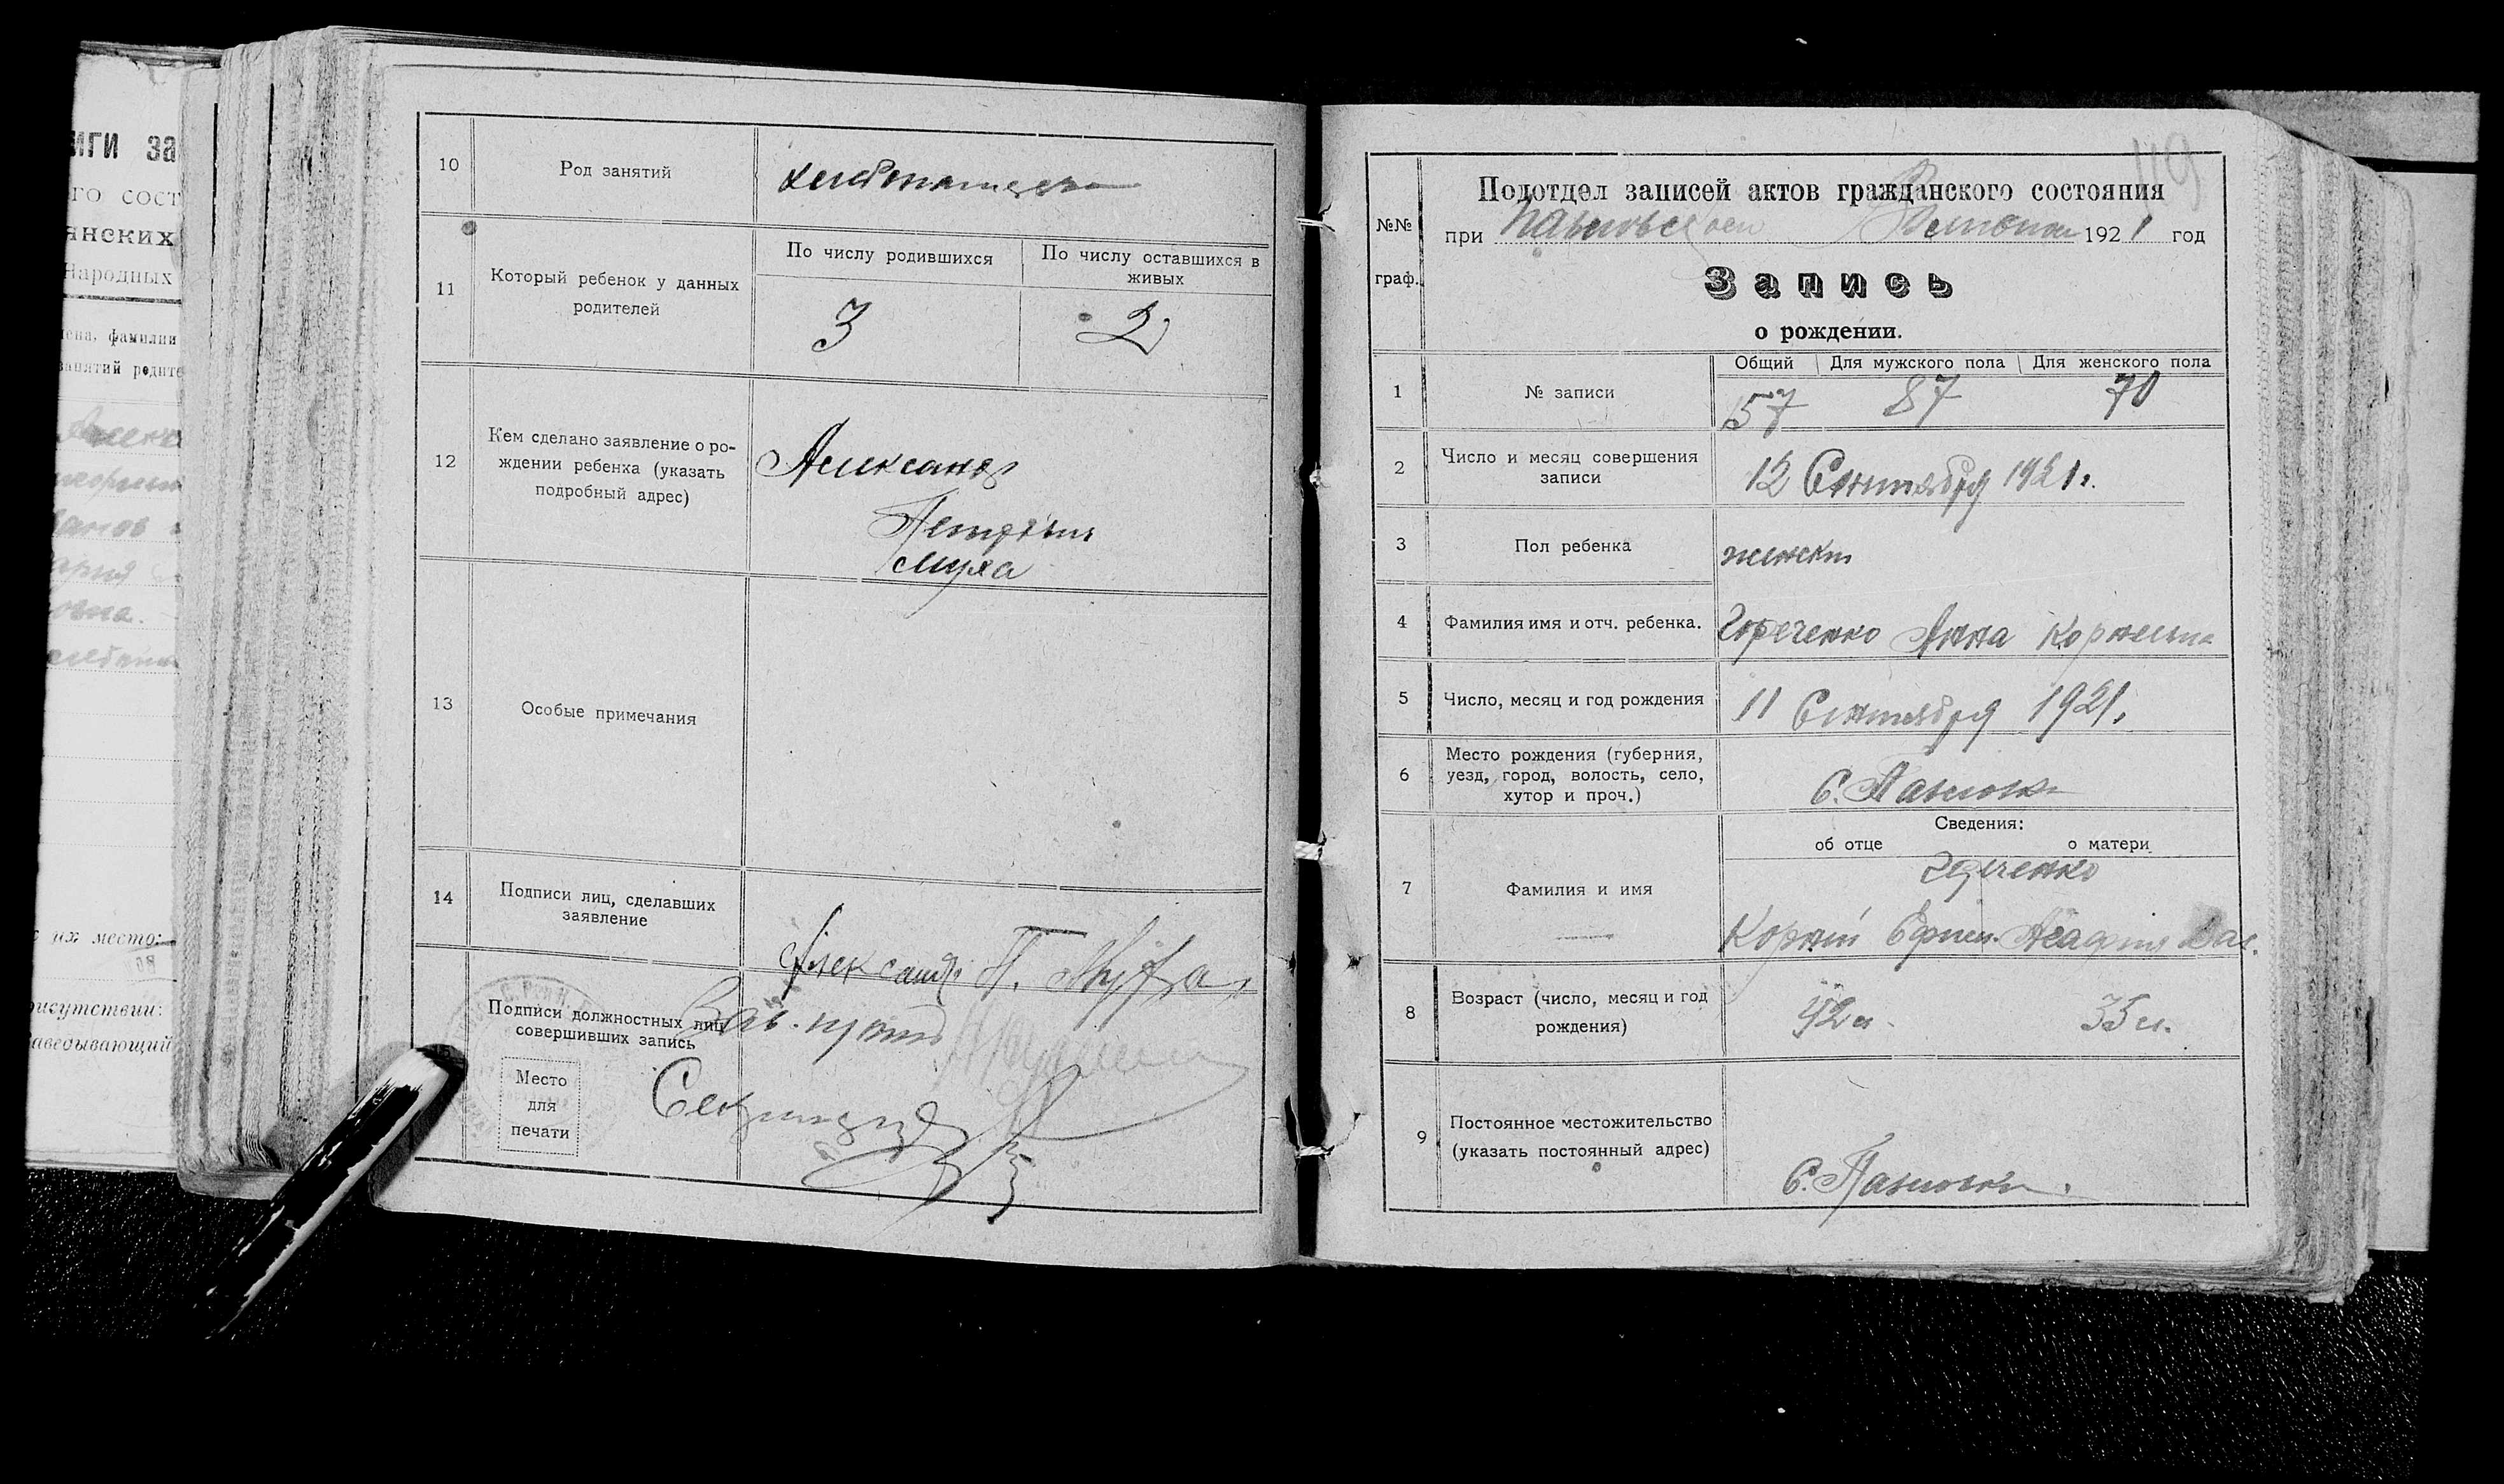 иги за
го сост
янских
Народных
ена, фамилии
занятий родите
овна.
их место:
рисутствии:
аведывающий
10
Род занятий
хлебопашество
11
Который ребенок у данных
родителей
По числу родившихся
По числу оставшихся в
живых
3
2
12
Кем сделано заявление о ро-
ждении ребенка (указать
подробный адрес)
Александр
Петрович
Муха
13
Особые примечания
14
Подписи лиц, сделавших
заявление
Александр П. Муха
15
Подписи должностных лиц
совершивших запись
Зав.
Место
для
печати
Секретарь
119
№№
граф.
Подотдел записей актов гражданского состояния
при Павловском Волисполком 1921 год
Запись
о рождении.
1
№ записи
Общий
Для мужского пола
Для женского пола
157
87
70
2
Число и месяц совершения
записи
12 Сентября 1921.
3
Пол ребенка
женский
4
Фамилия имя и отч. ребенка.
Анна Корнеевна
5
Число, месяц и год рождения
11 Сентября 1921.
6
Место рождения (губерния,
уезд, город, волость, село,
хутор и проч.)
С. Павловка
7
Фамилия и имя
Сведения:
об отце
о матери
Корней Ефим. Агафия Вас.
8
Возраст (число, месяц и год
рождения)
42 л.
35 л.
9
Постоянное местожительство
(указать постоянный адрес)
С. Павловка.